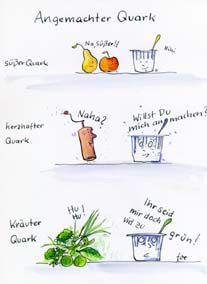 Angemachter Quark
Na, Süßer!!
Hihi
süßer Quark
Naha?
Willst Du
mich anmachen?
herzhafter
Quark
Hu!
Hu!
Ihr seid
mir doch
viel zu
grün!
Kräuter
Quark